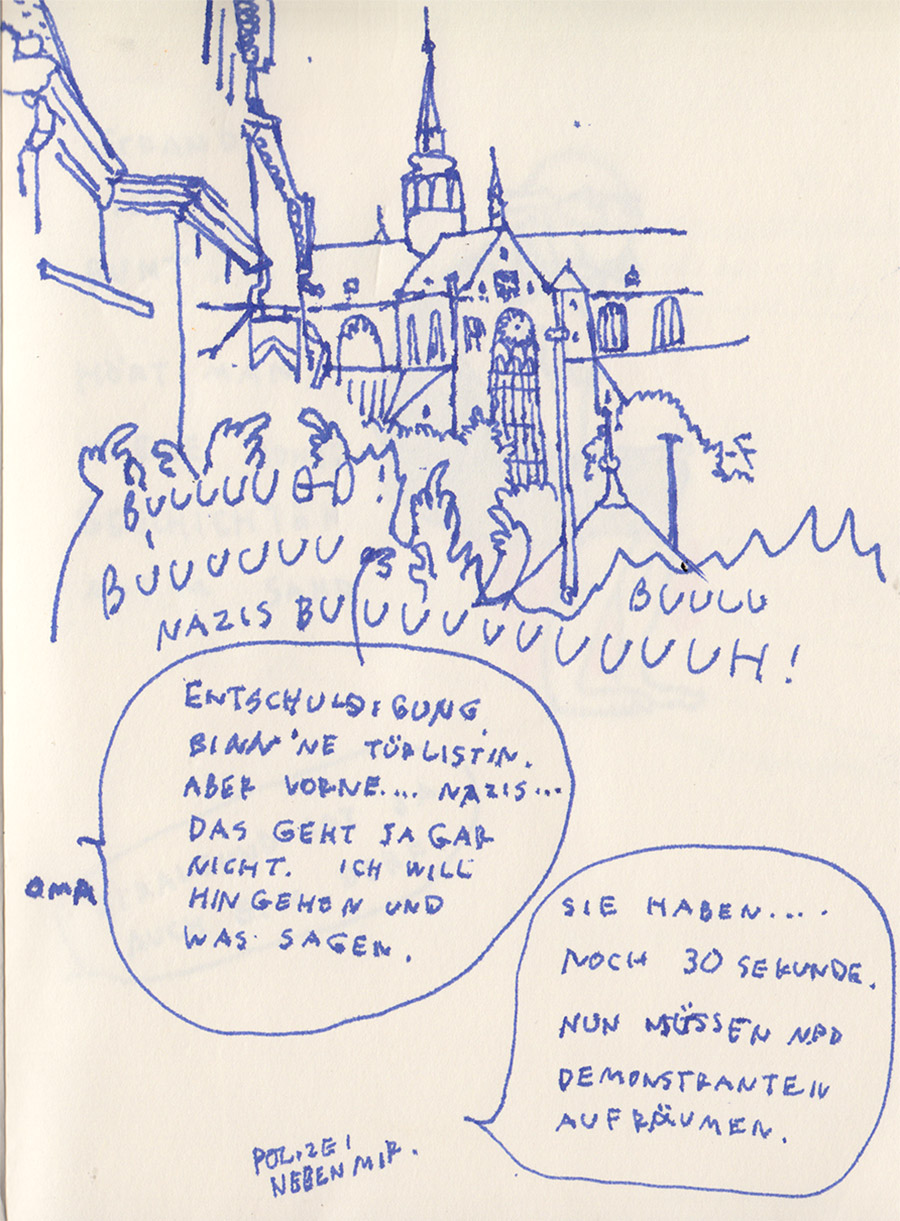 BUUUUU !
BUUUUUU
NAZIS BUUUUUUUUUUH!
BUUUU
ENTSCHULDIGUNG,
BINN 'NE TÜRLISTIN.
ABER VORNE... NAZIS...
DAS GEHT JA GAR
NICHT. ICH WILL
HINGEHEN UND
WAS SAGEN.
OMA
SIE HABEN....
NOCH 30 SEKUNDE.
NUN MÜSSEN NPD
DEMONSTRANTEN
AUFRÄUMEN.
POLIZEI
NEBEN MIR.